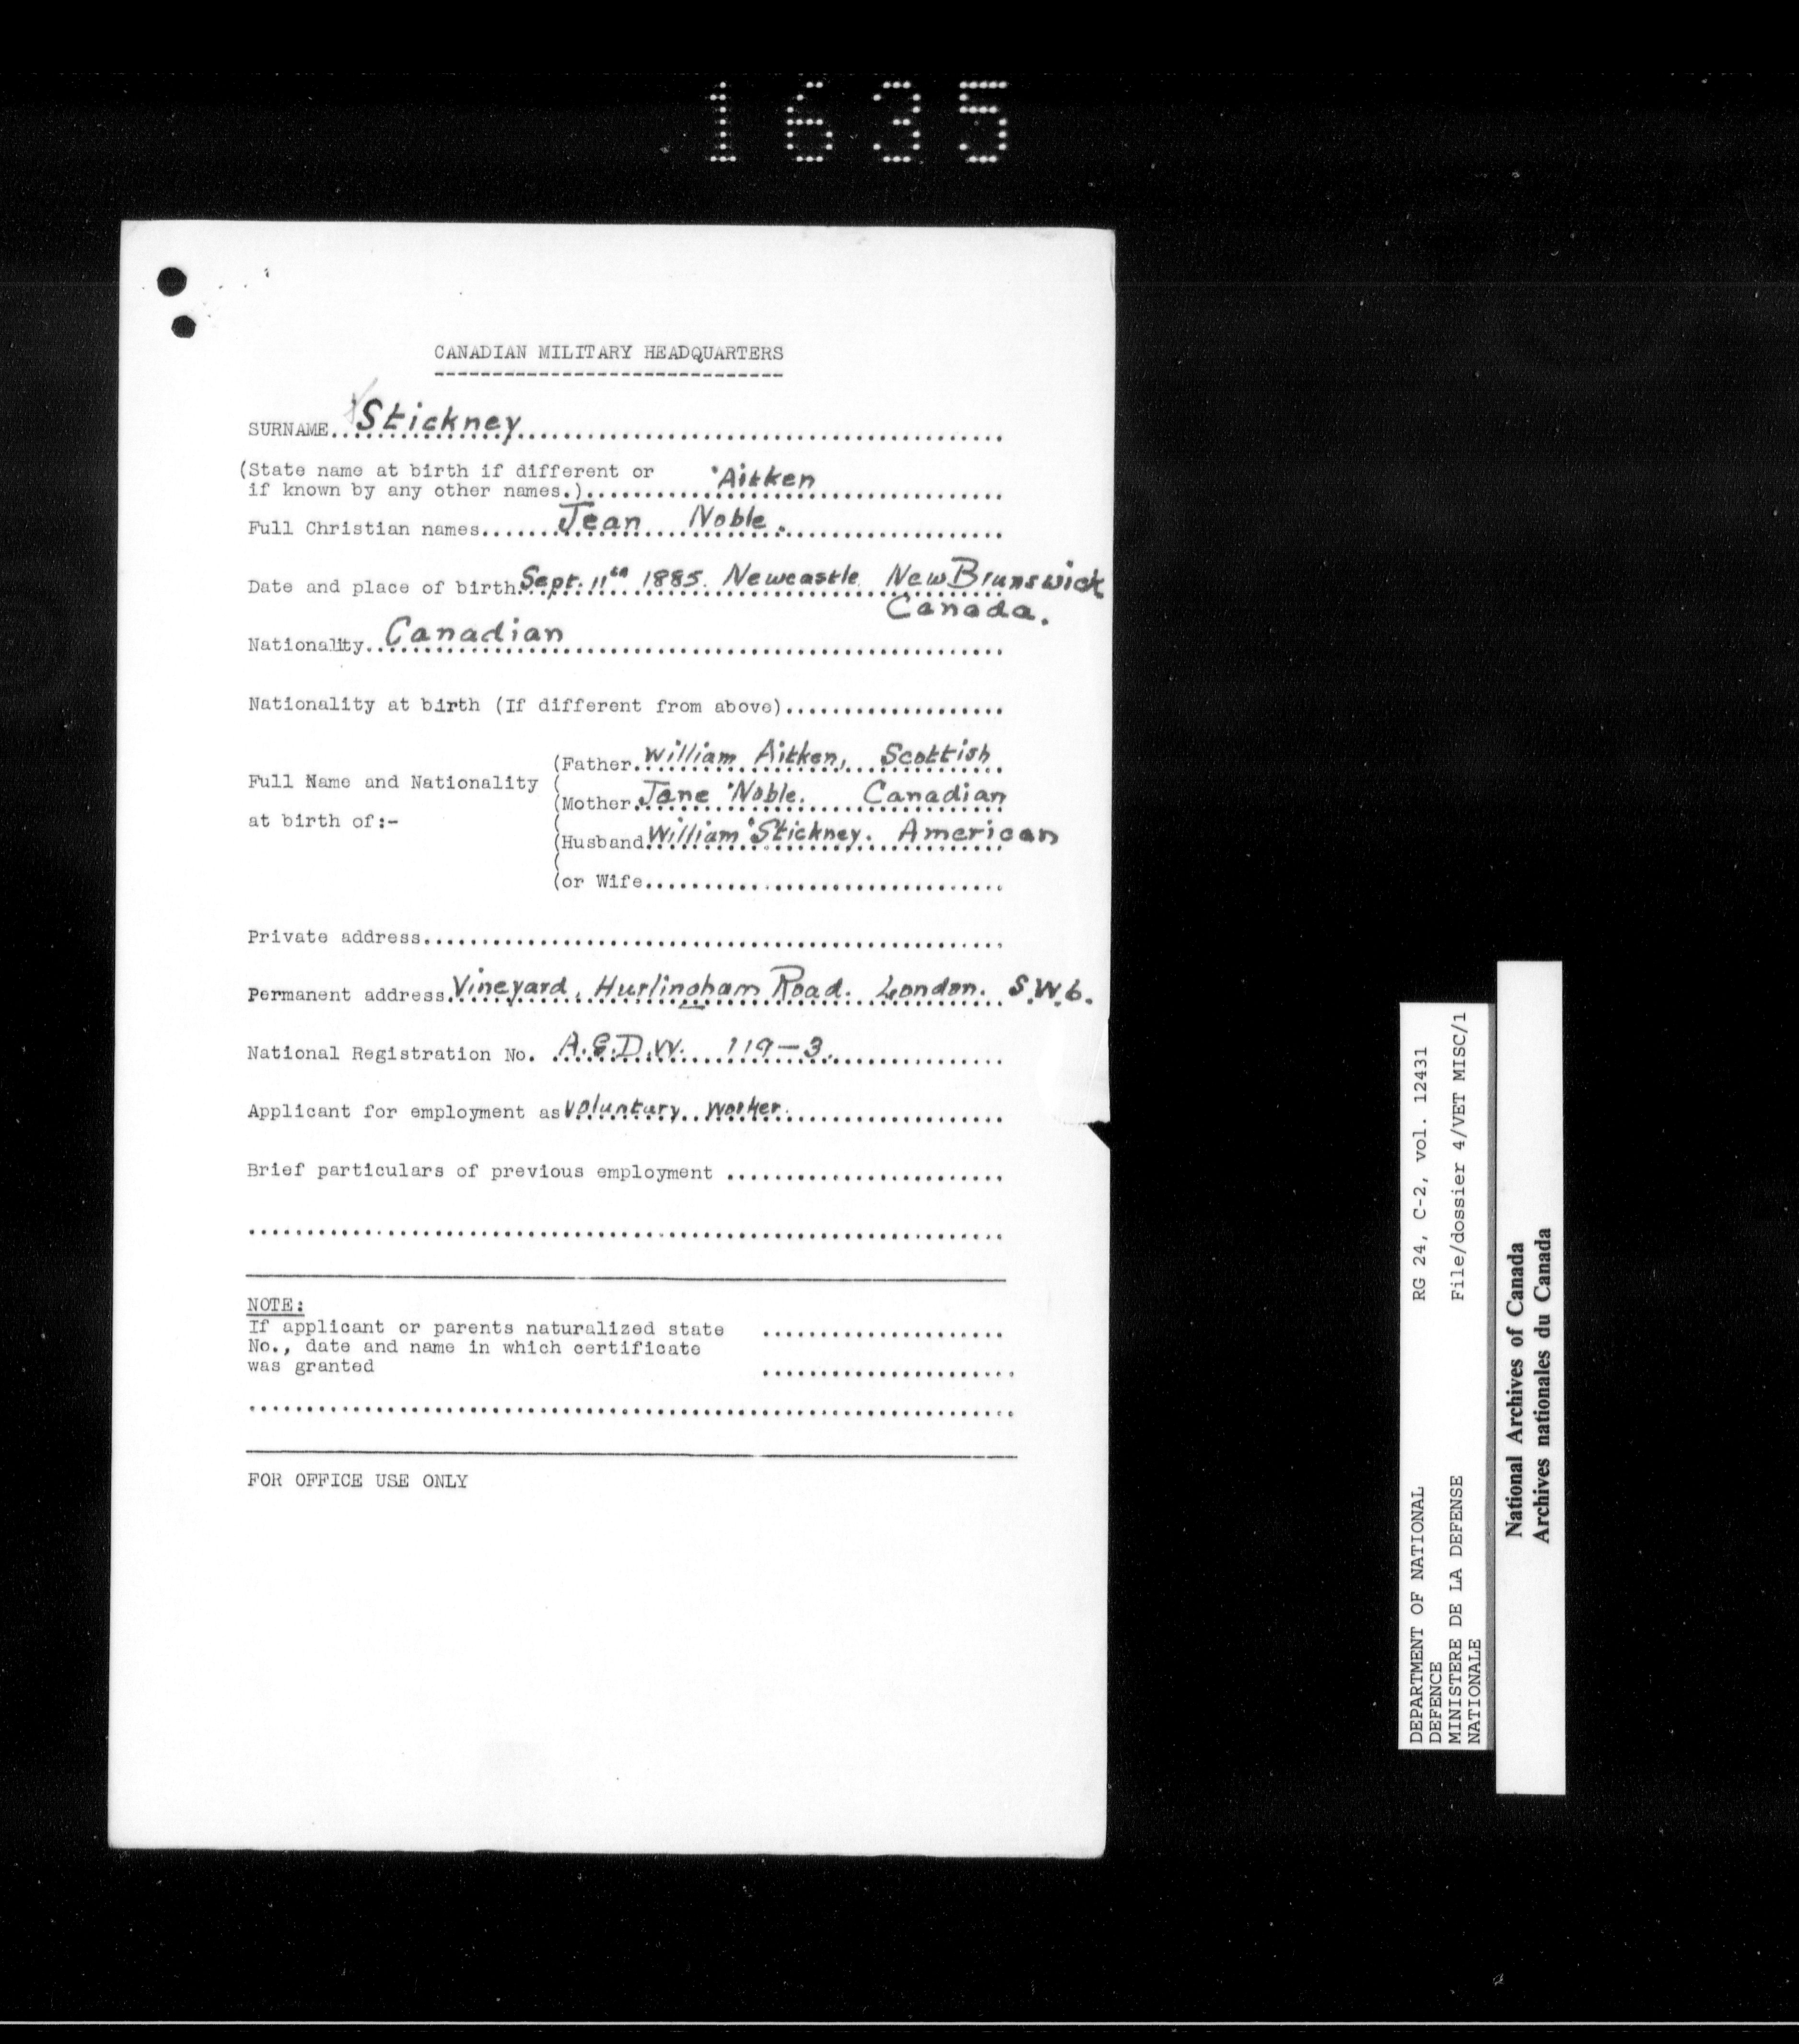 1635
CANADIAN MILITARY HEADQUARTERS
SURNAME. Stickney
(State name at birth if different or
if known by any other names.) Aitken
Full Christian names Jean Noble.
Date and place of birth Sept. 11th 1885. Newcastle New Brunswick
Canada.
Nationality. Canadian
Nationality at birth (If different from above)
Full Name and Nationality
at birth of:-
(Father. William Aitken, Scottish
(Mother. Jane Noble. Canadian
(Husband William Stickney. American
(or Wife
Private address
Permanent address Vineyard, Hurlingham Road. London. S.W.6.
National Registration No. A.E.D.W. 119-3.
Applicant for employment as Voluntary Worker.
Brief particulars of previous employment
NOTE:
If applicant or parents naturalized state
No., date and name in which certificate
was granted
FOR OFFICE USE ONLY
DEPARTMENT OF NATIONAL
DEFENCE
MINISTERE DE LA DEFENSE
NATIONALE
RG 24, C-2, vol. 12431
File/dossier 4/VET MISC/1
National Archives of Canada
Archives nationales du Canada